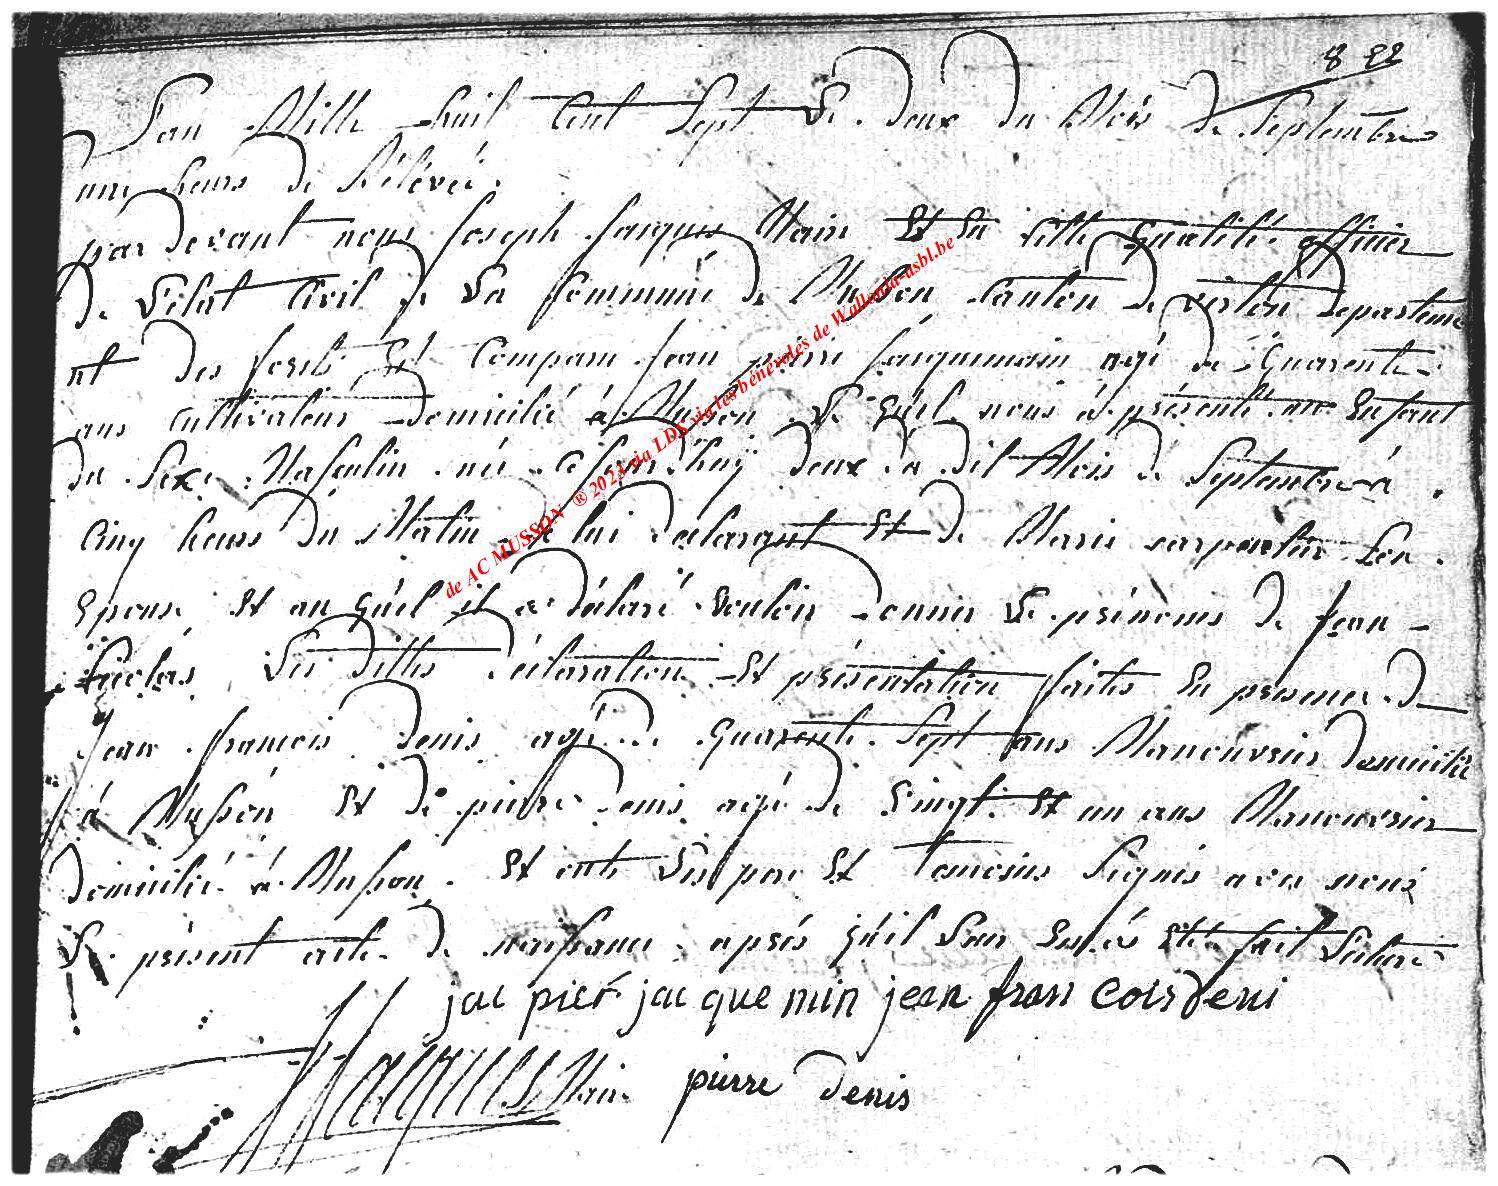 8 22
L'an Mille huit Cent Sept Le deux du Mois de Septembre
une heure de Relevée.
par devant nous Joseph Jacques Maire Et En Cette Qualité officier
de L'état Civil de La Commune de Musson Canton de virton departeme
nt des forets Est Comparu Jean pierre Jacquemain agé de Quarente
ans cultivateur domicilié à Musson Le Quel nous à présenté un Enfant
du Sexe Masculin né ce Jourd'huij deux du dit Mois de Septembre à
Cinq heures du Matin de lui declarant Et de Marie carpentier Son
Epouse Et au Quel il a declaré Vouloir donner Le prénoms de Jean
Nicolas Les dittes déclaration Et présentation faites En presence de
Jean francois denis agé de Quarente Sept ans Manouvrier domicilié
à Musson Et de pierre denis agé de Vingt Et un ans Manouvrier
domicilié à Musson Et ont Les pere Et temoins Signés avec nous
Le présent acte de naissance après qu'il Leur En à Eté fait Lecture
jac pier jac que min jean fran cois deni
Jacques Maire pierre denis
de AC MUSSON ® 2023 via LDK via les bénévoles de Wallonia-asbl.be